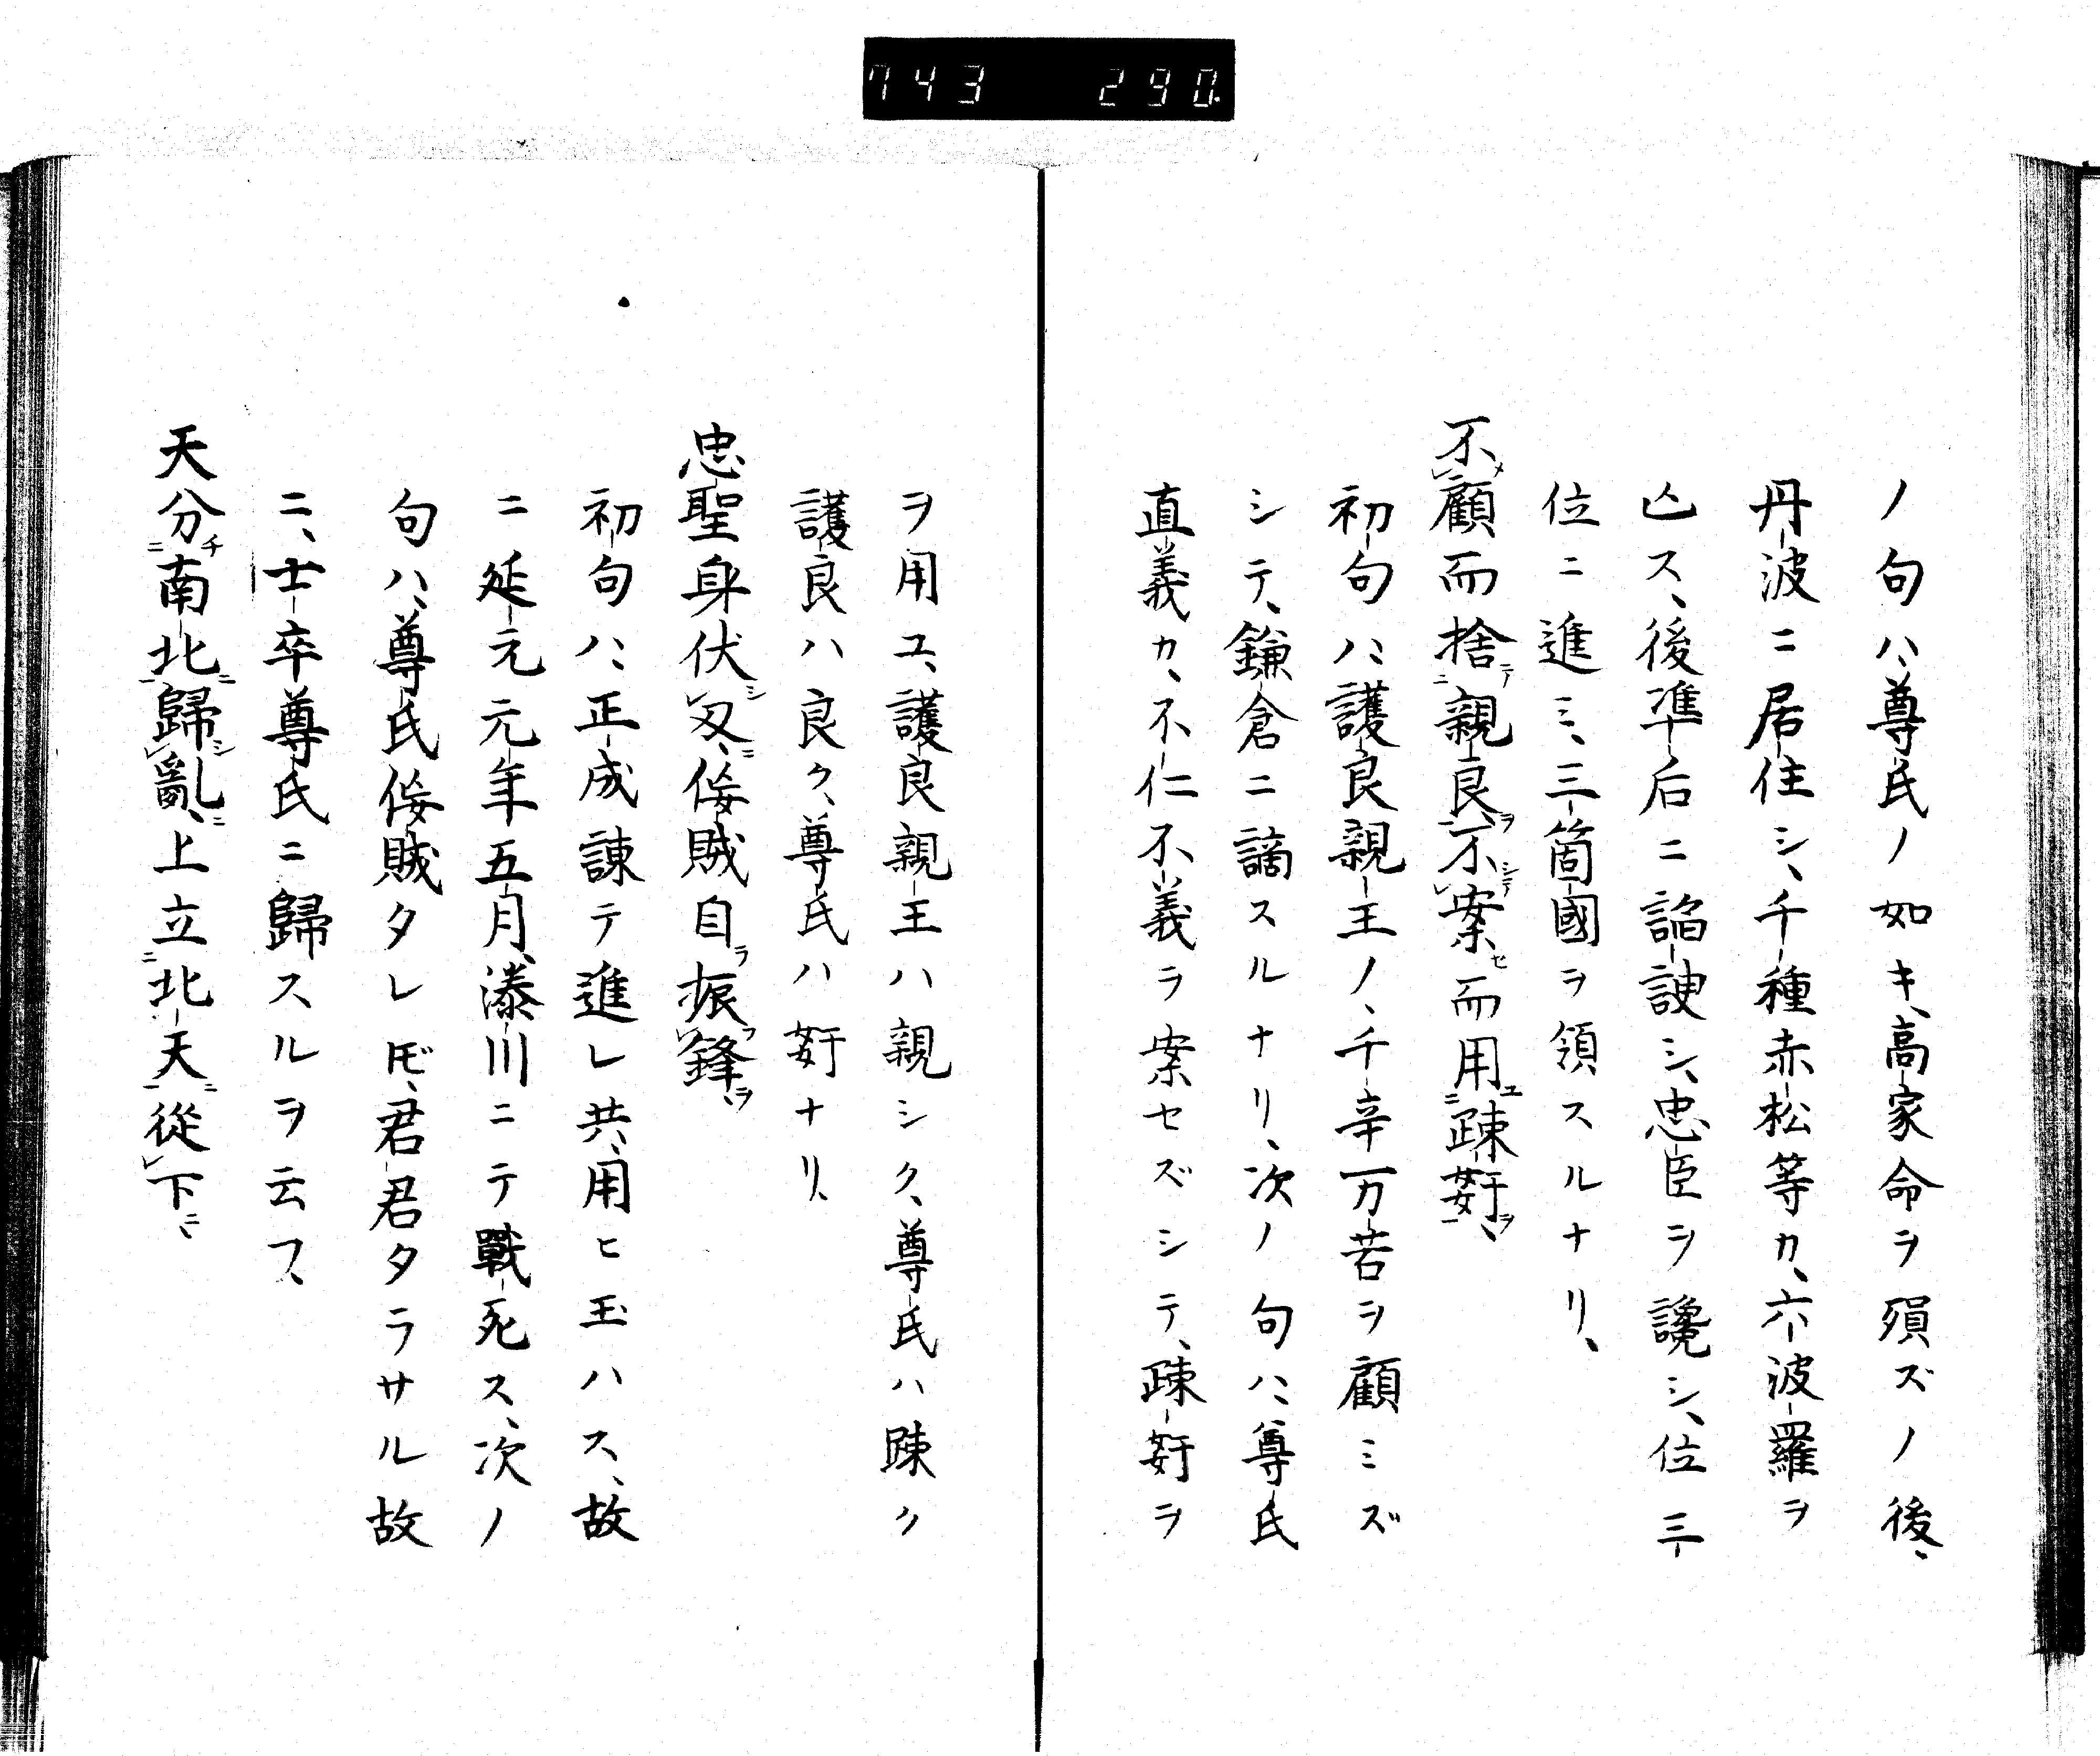 743 290
ノ句ハ、尊氏ノ如キ、高家命ヲ殞ズノ後、
丹波ニ居住シ、千種赤松等カ、六波羅ヲ
亾ス、後準后ニ諂諛シ、忠臣ヲ讒シ、位三
位ニ進ミ、三箇國ヲ領スルナリ、
不顧而捨親良不案而用疎姧、
初句ハ、護良親王ノ、千辛万苦ヲ顧ミズ
シテ、鎌倉ニ謫スルナリ、次ノ句ハ、尊氏
直義カ、不仁不義ヲ案セズシテ、疎姧ヲ
ヲ用ユ、護良親王ハ親シク、尊氏ハ疎ク
護良ハ良ク、尊氏ハ姧ナリ、
忠聖身伏刄、佞賊自振鋒、
初句ハ、正成諌テ進レ共、用ヒ玉ハス、故
ニ延元元年五月、湊川ニテ戰死ス、次ノ
句ハ、尊氏佞賊タレ𪜈、君君タラサル故
ニ、士卒尊氏ニ歸スルヲ云フ、
天分南北歸亂、上立北天從下